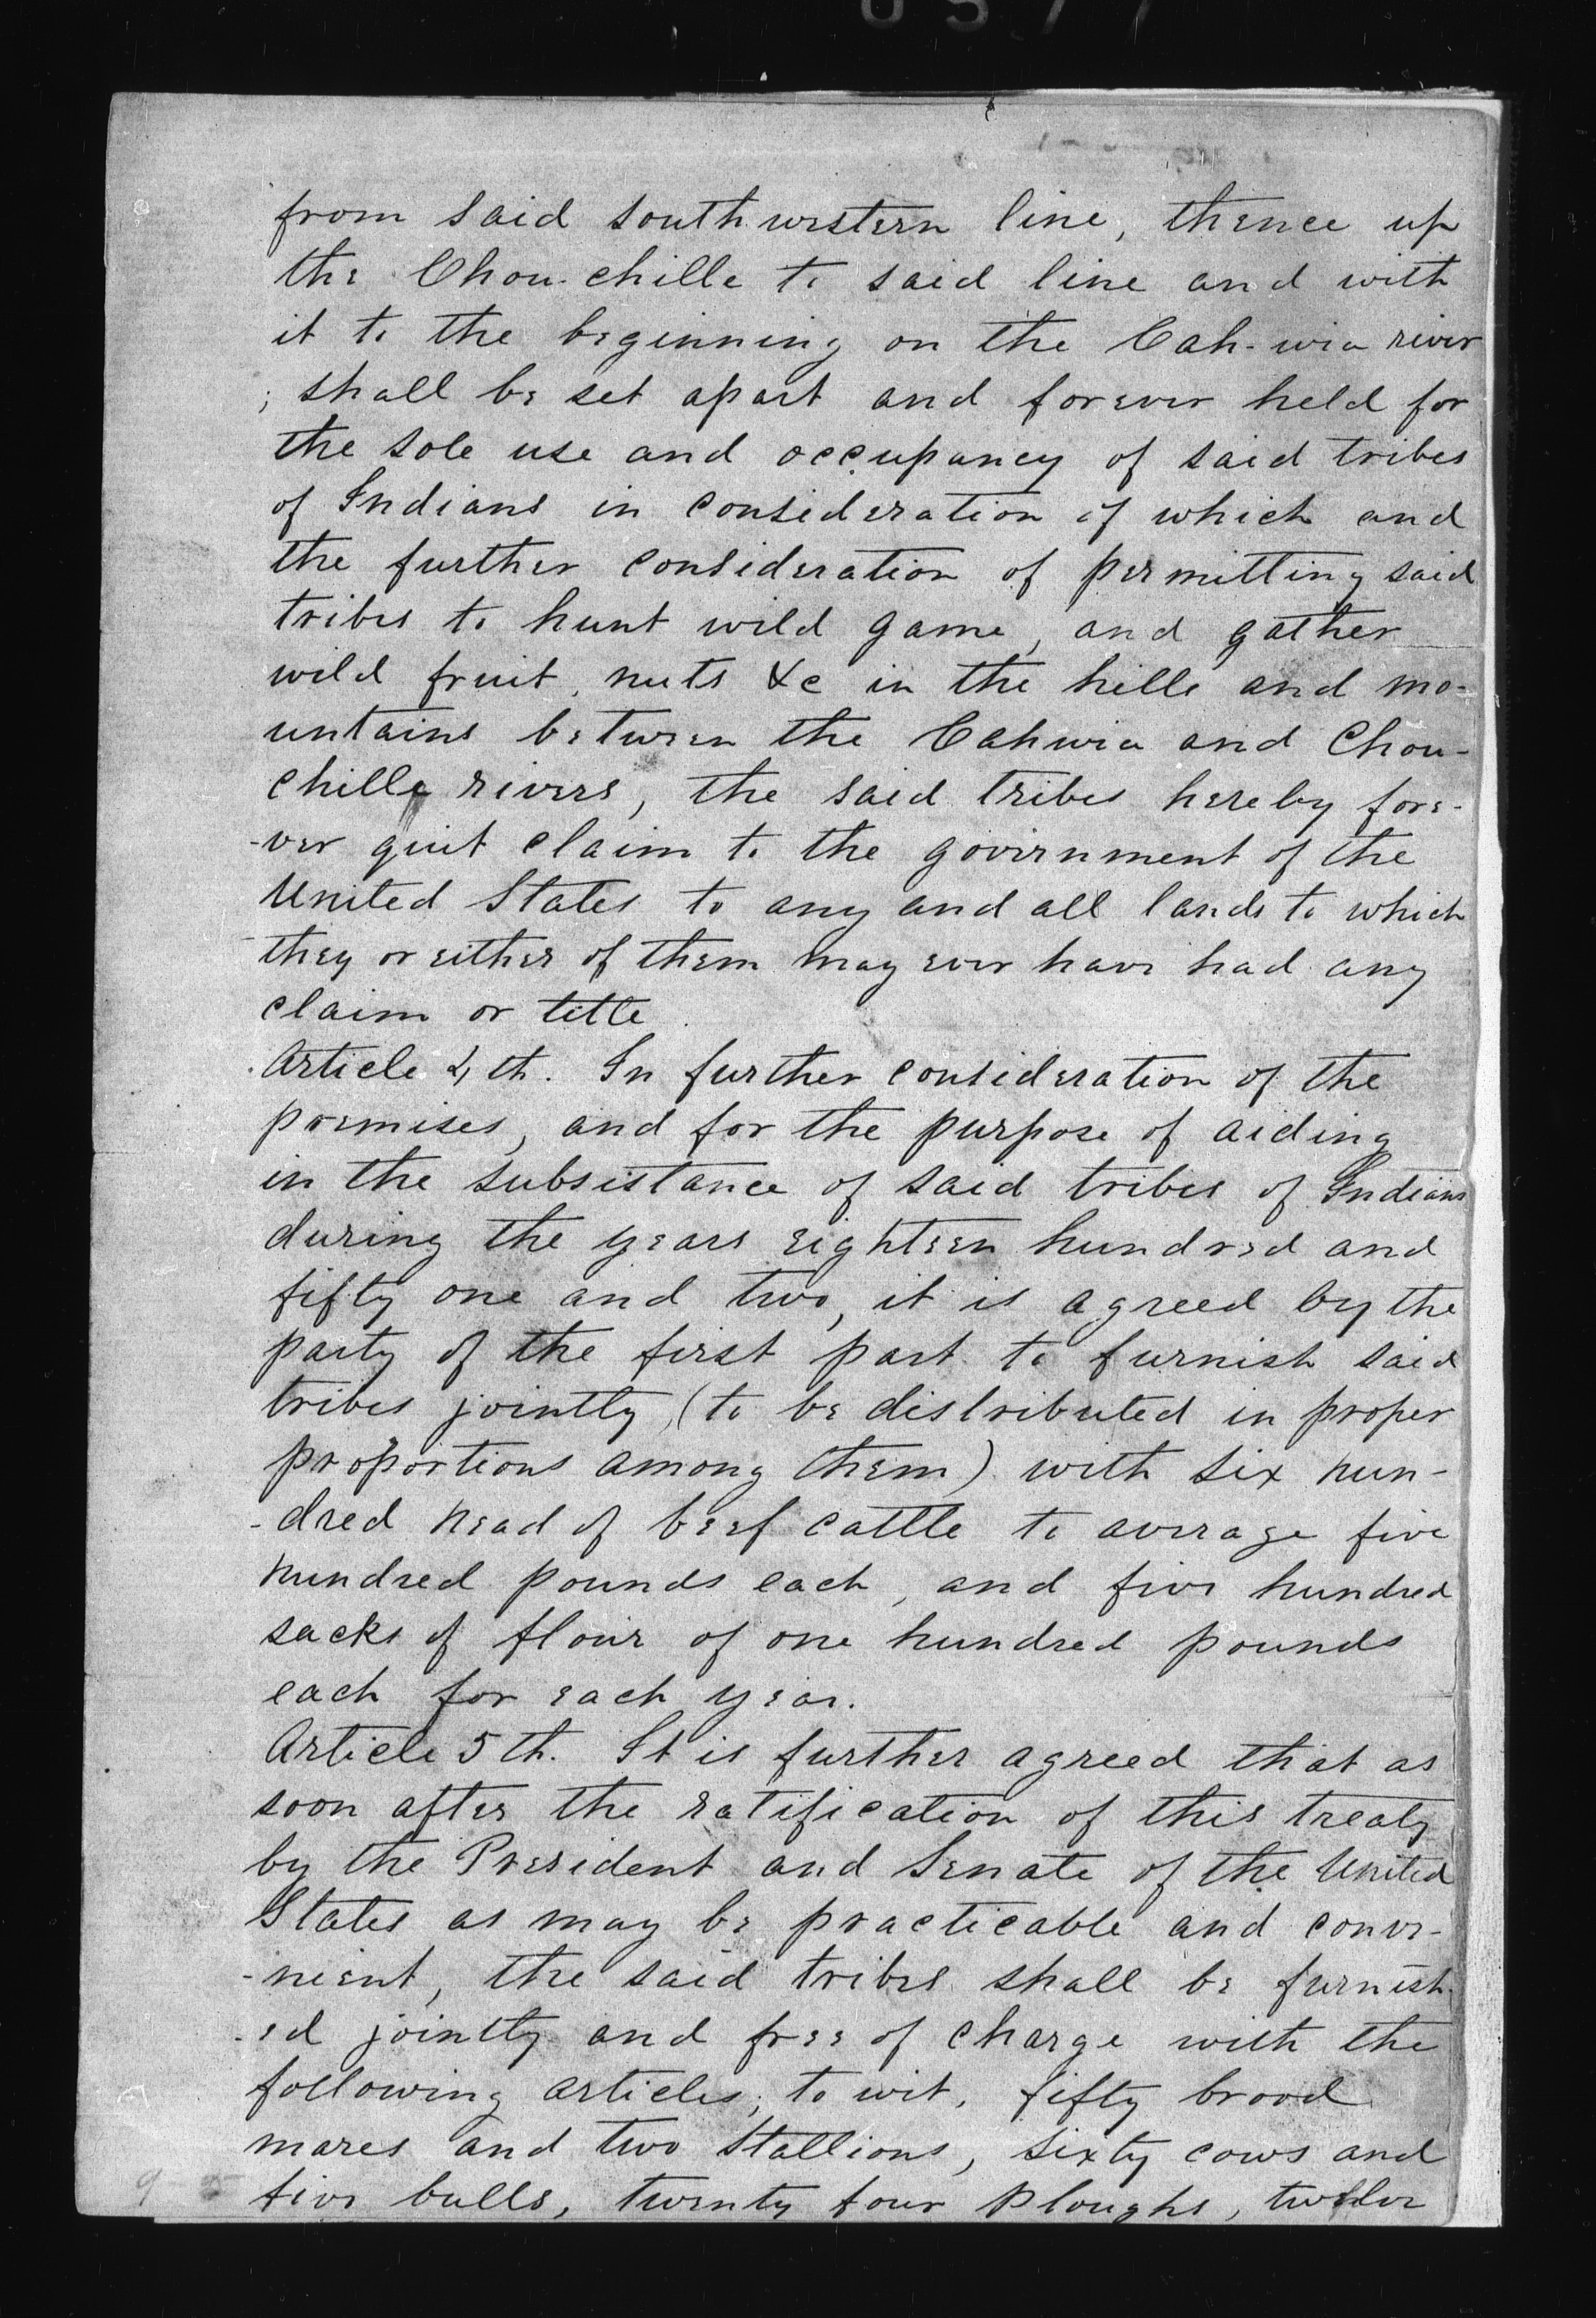 from said southwestern line, thence up
the Chou-chille to said line and with
it to the beginning on the Cah-wia river
; shall be set apart and forever held for
the sole use and occupancy of said tribes
of Indians in consideration of which and
the further consideration of permitting said
tribes to hunt wild game, and gather
wild fruit, nuts &c in the hills and mo-
untains between the Cahwia and Chou-
chille rivers, the said tribes hereby fore-
-ver quit claim to the government of the
United States to any and all lands to which
they or either of them may ever have had any
claim or title
Article 4th. In further consideration of the
premises, and for the purpose of aiding
in the subsistance of said tribes of Indians
during the years eighteen hundred and
fifty one and two, it is agreed by the
party of the first part to furnish said
tribes jointly, (to be distributed in proper
proportions among them) with six hun-
-dred head of beef cattle to average five
hundred pounds each, and five hundred
sacks of flour of one hundred pounds
each for each year.
Article 5th. It is further agreed that as
soon after the ratification of this treaty
by the President and Senate of the United
States as may be practicable and conve-
-nient, the said tribes shall be furnish-
-ed jointly and free of charge with the
following articles; to wit, fifty brood
mares and two stallions, sixty cows and
five bulls, twenty four ploughs, twelve